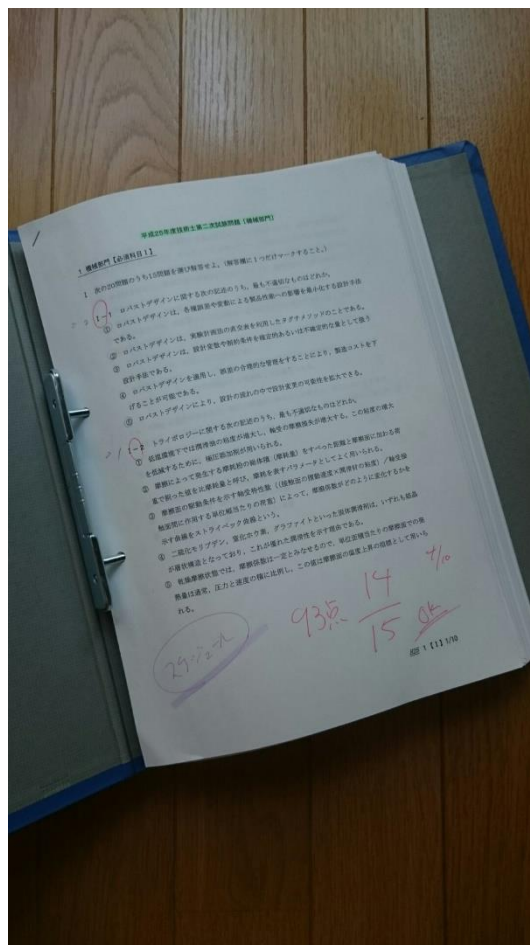 平成25年度技術士第二次試験問題〔機械部門〕
1 機械部門【必須科目Ⅰ】
Ⅰ 次の20問題のうち15問題を選び解答せよ。(解答欄に1つだけマークすること。)
Ⅰ-1 ロバストデザインに関する次の記述のうち、最も不適切なものはどれか。
① ロバストデザインは、各種誤差や変動による製品性能への影響を最小化する設計手法
である。
② ロバストデザインは、実験計画法の直交表を利用したタグチメソッドのことである。
③ ロバストデザインは、設計変数や制約条件を確定的あるいは不確定的な量として扱う
設計手法である。
④ ロバストデザインを運用し、誤差の合理的な管理をすることにより、製造コストを下
げることが可能である。
⑤ ロバストデザインにより、設計の流れの中で設計変更の可能性を拡大できる。
Ⅰ-2 トライボロジーに関する次の記述のうち、最も不適切なものはどれか。
① 低温環境下では潤滑油の粘度が増大し、軸受の摩擦損失が増大する。この粘度の増大
を低減するために、極圧添加剤が用いられる。
② 摩擦によって発生する摩耗粉の総体積(摩耗量)をすべった距離と摩擦面に加わる荷
重で割った値を比摩耗量と呼び、摩耗を表すパラメータとしてよく用いられる。
③ 摩擦面の駆動条件を示す軸受特性数((接触面の摺動速度×潤滑材の粘度)/軸受接
触面間に作用する単位幅当たりの荷重)によって、摩擦係数がどのように変化するかを
示す曲線をストライベック曲線という。
④ 二硫化モリブデン、窒化ホウ素、グラファイトといった固体潤滑剤は、いずれも結晶
が層状構造となっており、これが優れた潤滑性を示す理由である。
⑤ 乾燥摩擦状態では、摩擦係数は一定とみなせるので、単位面積当たりの摩擦面での発
熱量は通常、圧力と速度の積に比例し、この値は摩擦面の温度上昇の指標として用いら
れる。
スケジュール
93点 14
15
4/10
1【Ⅰ】1/10